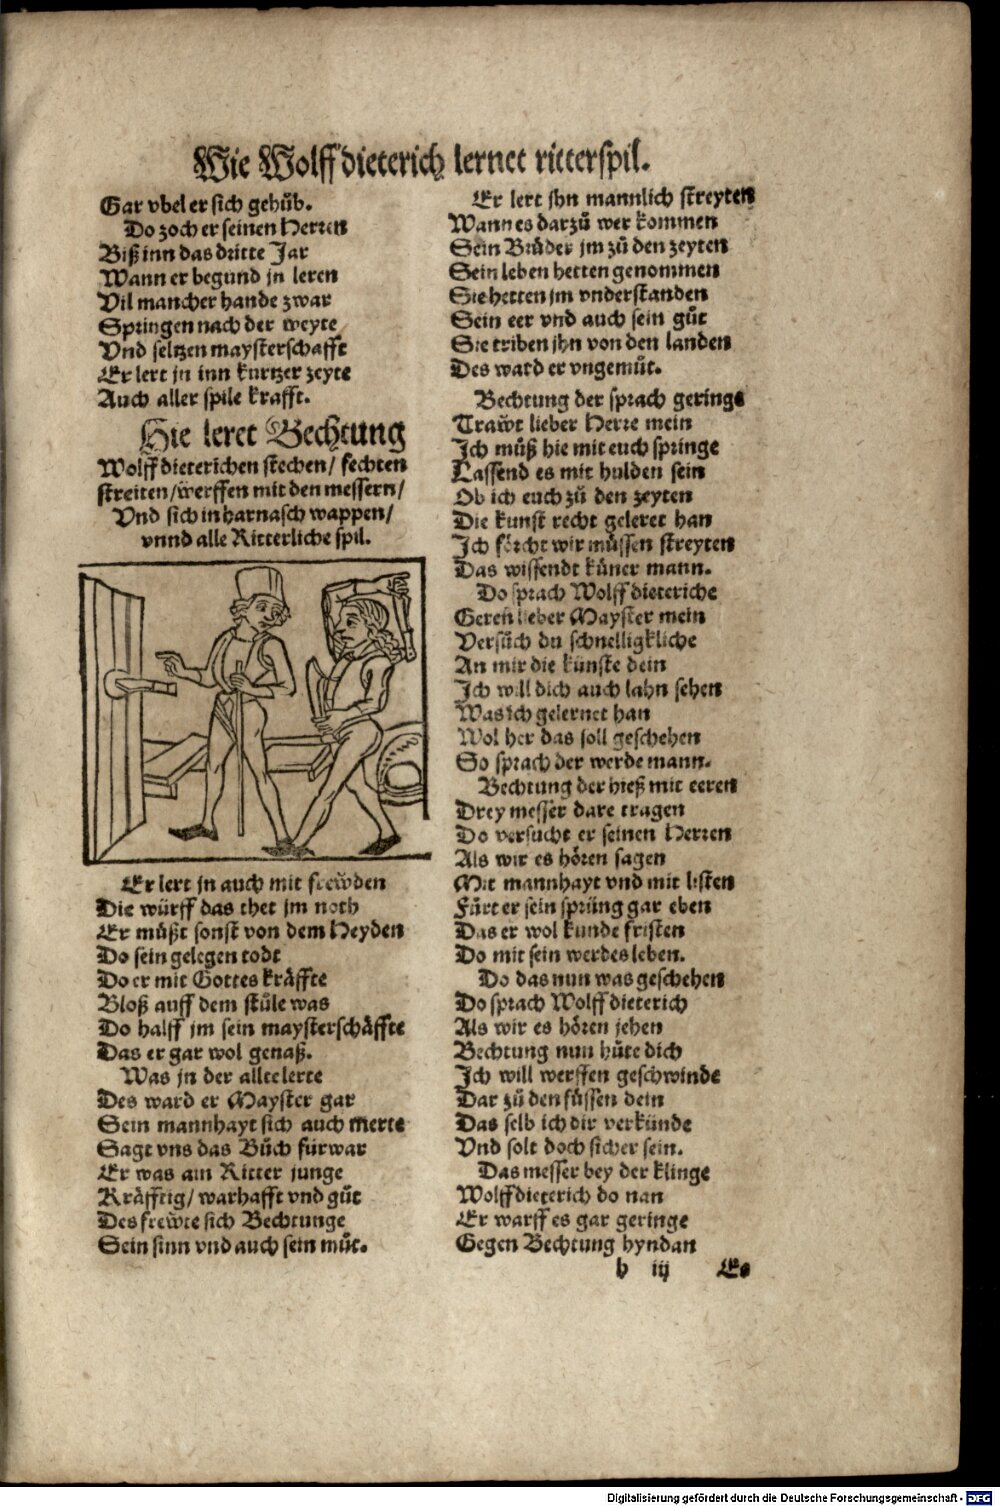 Wie Wolffdieterich lernet ritterspil.
Gar vbel er sich gehůb.
Do zoch er seinen Herren
Biß inn das dritte Jar
Wann er begund jn leren
Vil mancher hande zwar
Springen nach der weyte
Vnd seltzen maysterschafft
Er lert jn inn kurtzer zeyte
Auch aller spile krafft.
Hie leret Bechtung
Wolffdieterichen stechen/ fechten
streiten/werffen mit den messern/
Vnd sich in harnasch wappen/
vnnd alle Ritterliche spil.
Er lert jn auch mit frewden
Die würff das thet jm noth
Er můßt sonst von dem Heyden
Do sein gelegen todt
Do er mit Gottes kräffte
Bloß auff dem stůle was
Do halff jm sein maysterschäffte
Das er gar wol genaß.
Was jn der alltelerte
Des ward er Mayster gar
Sein mannhayt sich auch merte
Sagt vns das Bůch fürwar
Er was ain Ritter junge
Kräfftig/ warhafft vnd gůt
Des frewte sich Bechtunge
Sein sinn vnd auch sein můt.
Er lert jhn mannlich streyten
Wann es darzů wer kommen
Sein Brüder jm zů den zeyten
Sein leben hetten genommen
Sie hetten jm vnderstanden
Sein eer vnd auch sein gůt
Sie triben jhn von den landen
Des ward er vngemůt.
Bechtung der sprach geringe
Trawt lieber Herre mein
Ich můß hie mit euch springe
Lassend es mit hulden sein
Ob ich euch zů den zeyten
Die kunst recht geleret han
Ich förcht wir müssen streyten
Das wissendt küner mann.
Do sprach Wolffdieteriche
Geren lieber Mayster mein
Versůch du schnelligkliche
An mir die künste dein
Ich will dich auch lahn sehen
Was ich gelernet han
Wol her das soll geschehen
So sprach der werde mann.
Bechtung der hieß mit eeren
Drey messer dare tragen
Do versucht er seinen Herren
Als wir es hören sagen
Mit mannhayt vnd mit listen
Fürt er sein sprüng gar eben
Das er wol kunde fristen
Do mit sein werdes leben.
Do das nun was geschehen
Do sprach Wolffdieterich
Als wir es hören jehen
Bechtung nun hůte dich
Ich will werffen geschwinde
Dar zů den füssen dein
Das selb ich dir verkünde
Vnd solt doch sicher sein.
Das messer bey der klinge
Wolffdieterich do nan
Er warff es gar geringe
Gegen Bechtung hyndan
b iij Es
Digitalisierung gefördert durch die Deutsche Forschungsgemeinschaft - DFG